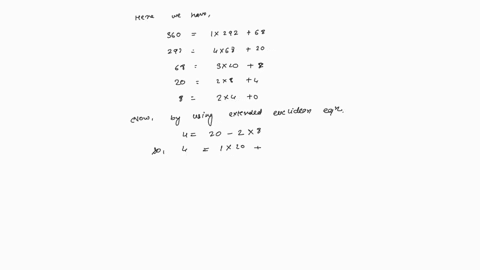 Here we have,
360 = 1 × 292 + 68
292 = 4×68 + 20
68 = 3×20 + 8
20 = 2×8 + 4
8 = 2×4 +0
Now, by using extended euclidean eqn.
4 = 20 - 2 × 8
So, 4 = 1 × 20 +